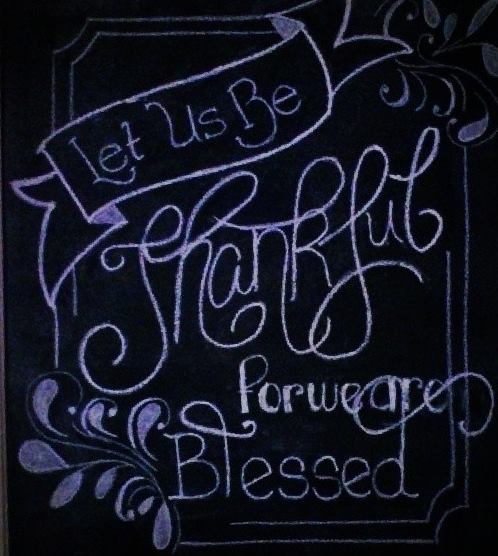 Let Us Be
Thankful
for we are
Blessed